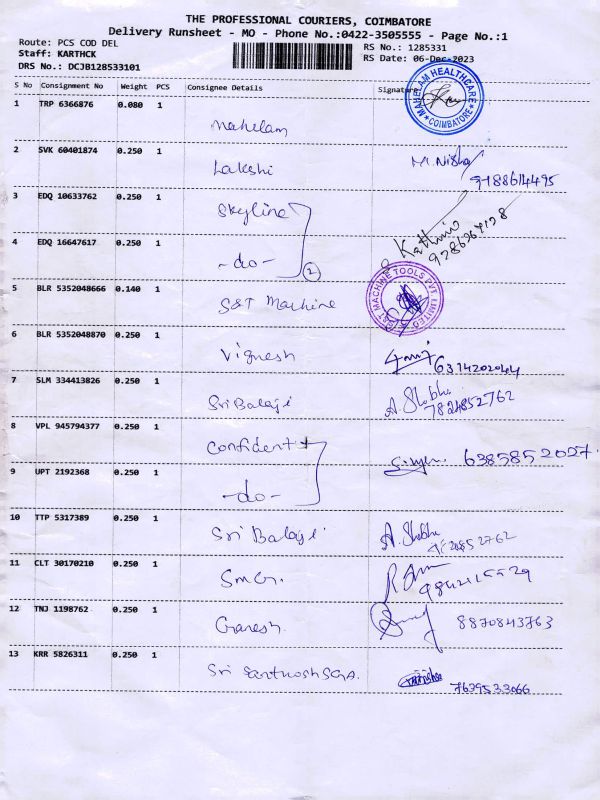 THE PROFESSIONAL COURIERS, COIMBATORE
Delivery Runsheet - MO - Phone No.:0422-3505555 - Page No.:1
Route: PCS COD DEL
Staff: KARTHCK
DRS No.: DCJB128533101
RS No.: 1285331
RS Date: 06-Dec-2023
S No Consignment No Weight PCS Consignee Details Signature
MAHELAM HEALTHCARE
* COIMBATORE *
1 TRP 6366876 0.080 1 Mahelam
2 SVK 60401874 0.250 1 Lakshi M. Nisha
9188614495
3 EDQ 10633762 0.250 1 Skyline
4 EDQ 16647617 0.250 1 -do- 2
5 BLR 5352048666 0.140 1 S&T Machine
S&T MACHINE TOOLS PVT LIMITED
6 BLR 5352048870 0.250 1 Vignesh 6374202044
7 SLM 334413826 0.250 1 Sri Balaji A. Shobha
7824852762
8 VPL 945794377 0.250 1 Confident
6385852027
9 UPT 2192368 0.250 1 -do-
10 TTP 5317389 0.250 1 Sri Balaji A. Shobha
11 CLT 30170210 0.250 1 SMG.
12 TNJ 1198762 0.250 1 Ganesh 8870843763
13 KRR 5826311 0.250 1 Sri Santhosh
7639533066